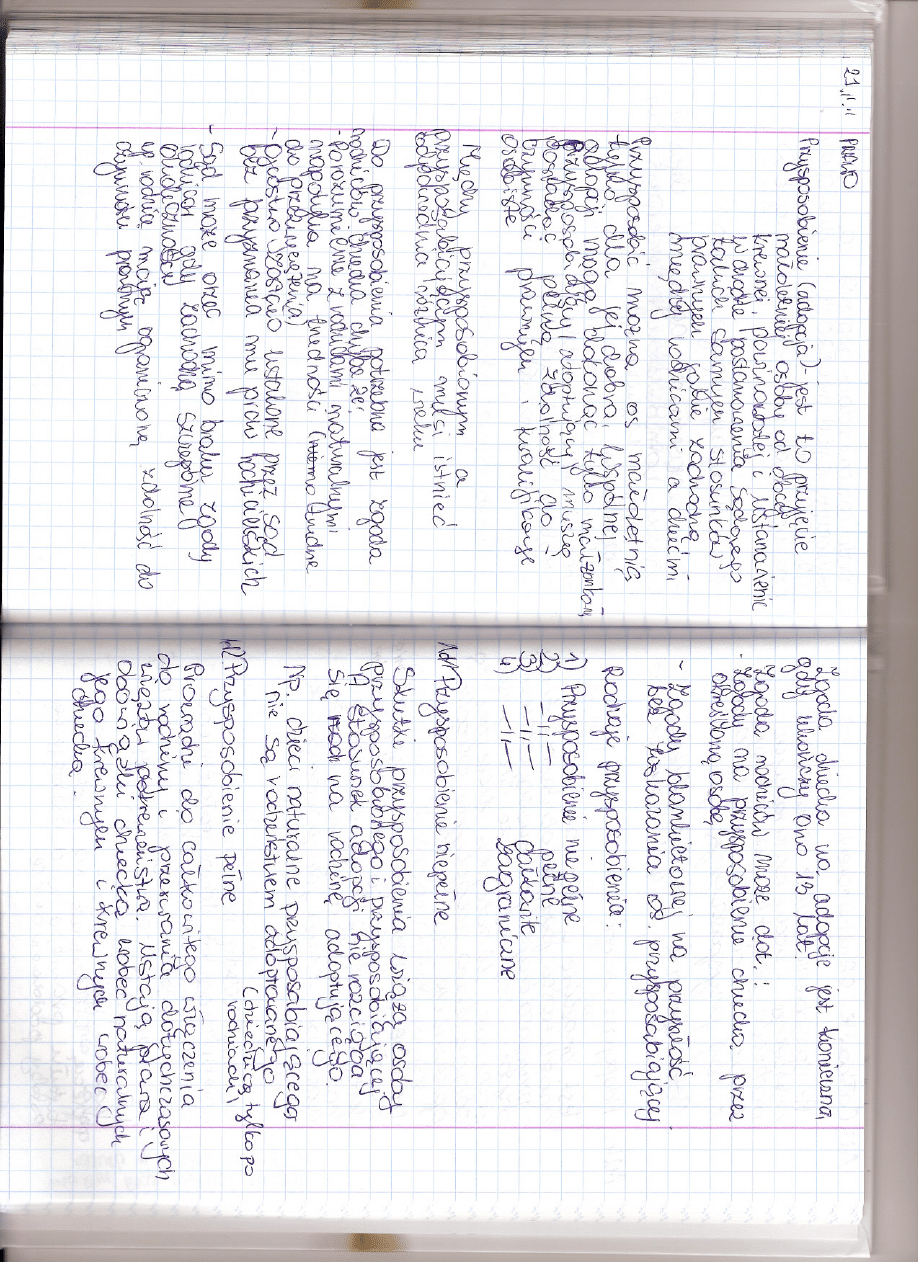 21.I.11 PRAWO
Przysposobienie (adopcja) - jest to przyjęcie
małoletniej osoby od obcej
krewnej, powinowatej i ustanowienie
w drodze postanowienia sądowego
takich samych stosunków
prawnych jakie zachodzą
między rodzicami a dziećmi
Przysposobić można os. małoletnią
tylko dla jej dobra, wspólnej
adopcji mogą dokonać tylko małżonkow
przysposabiający (adoptujący) muszę
posiadać pełną zdolność do
czynności prawnych i kwalifikacje
osobiste
Między przysposobionym a
przysposabiającym musi istnieć
odpowiednia różnica wieku
Do przysposobienia potrzebna jest zgoda
rodziców dziecka chyba że:
- porozumienie z rodzicami naturalnymi
napotyka na trudności (trudne
do przezwyciężenia)
- ojcostwo zostało ustalone przez sąd
bez przyznania mu praw rodzicielskich
- Sąd może orzec mimo braku zgody
rodziców gdy zachodzą szczególne
okoliczności
np. rodzice mając ograniczoną zdolność do
czynności prawnych
Zgoda dziecka na adopcje jest konieczna,
gdy ukończy ono 13 lat.
Zgoda rodziców może dot.:
- zgody na przysposobienie dziecka przez
określoną osobę
- zgody blankietowej na przyszłość,
bez wskazania os. przysposabiającej
Rodzaje przysposobienia:
1) Przysposobienie niepełne
2) -11- pełne
3) -11- całkowite
4) -11- zagraniczne
Ad1 Przysposobienie niepełne
Skutki przysposobienia wiążą osoby
przysposobionego i przysposabiającej
stosunek adopcji nie rozciąga
się na rodzinę adoptującego.
Np. dzieci naturalne przysposabiającego
nie są rodzeństwem adoptowanego
(dziedziczą tylko po
rodzicach)
Ad2 Przysposobienie pełne
Prowadzi do całkowitego włączenia
do rodziny i przerwania dotychczasowych
więzów pokrewieństwa. Ustają prawa i
obowiązki dziecka wobec naturalnych
jego krewnych i krewnych wobec
dziecka.